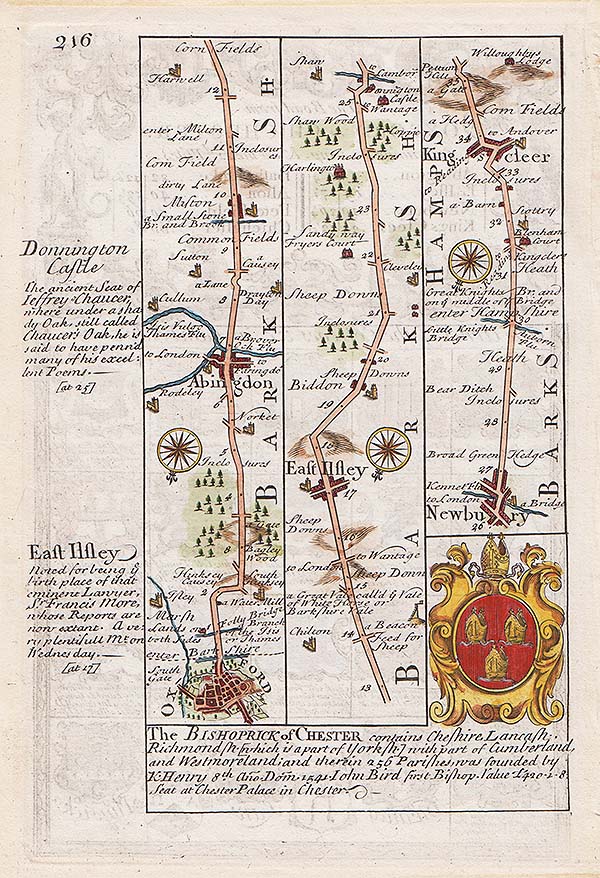 216
Donnington
Castle
The ancient Seat of
Jeffrey Chaucer,
where under a sha
dy Oak still called
Chaucers Oak, he is
said to have penn'd
many of his excel-
lent Poems.
[at 25]
East Ilsley
Noted for being ye
birth place of that
eminent Lawyer,
Sr. Francis More,
whose Reports are
now extant. A ve-
ry plentifull Mt. on
Wednesday.
[at 17]
Corn Fields
Harwell
12
enter Milton
Lane
11
Inclosur
es
Corn Field
dirty Lane
10
Milton
a Small Stone
Br. and Brook
Common Fields
Sutton
9
a
Causey
a Lane
8
Drayton
Day
Cullum
Thames Flu
to London
to Faringdo
Abingdon
Rodeley
6
Norket
5
Inclosures
4
a Gate
3
Bagley
Wood
Henksey
Causey
South
Henksey
2
Ifley
a Water Mill
Marsh
Land on
both sides
1
Bridge
Branch
of the Isis
or Thames
enter
Bark Shire
South
Gate
OXFORD
BARK SH:
Shaw
to
Lambor
Donnington
Castle
25
to
Wantage
Shaw Wood
Coppice
24
Inclosures
Harlington
23
Sandy way
Fryers Court
22
Cleveley
Sheep Downs
21
Inclosures
20
Sheep Downs
Biddon
19
18
East Ilsley
17
Sheep
Downs
16
to Wantage
to London
15
Sheep Down
a Great Vale call'd ye Vale
of White Horse or
Barkshire Vale
14
a Beacon
Feed for
Sheep
Chilton
13
BARK SH:
Willoughbys
Lodge
Hill
35
a Gate
Corn Fields
a Hedg
34
to Andover
Kings cleer
to Reading
33
Inclosures
a Barn
32
Blenham
Court
31
Kingcleer
Heath
Great Knights Br: and
on ye middle of ye Bridge
enter Hampshire
30
Little Knights
Bridge
29
Heath
Bear Ditch
Inclosures
28
Broad Green
Hedge
27
Kennet Flu
to London
a Bridge
Newbury
26
HAMPS:
BARKS:
The BISHOPRICK of CHESTER contains Cheshire, Lancash:
Richmondsh: [which is a part of Yorksh:] with part of Cumberland
and Westmoreland; and therein 256 Parishes, was founded by
K. Henry 8th. Ano. Dom. 1541. Iohn Bird first Bishop. Value £420.1.8.
Seat at Chester Palace in Chester.